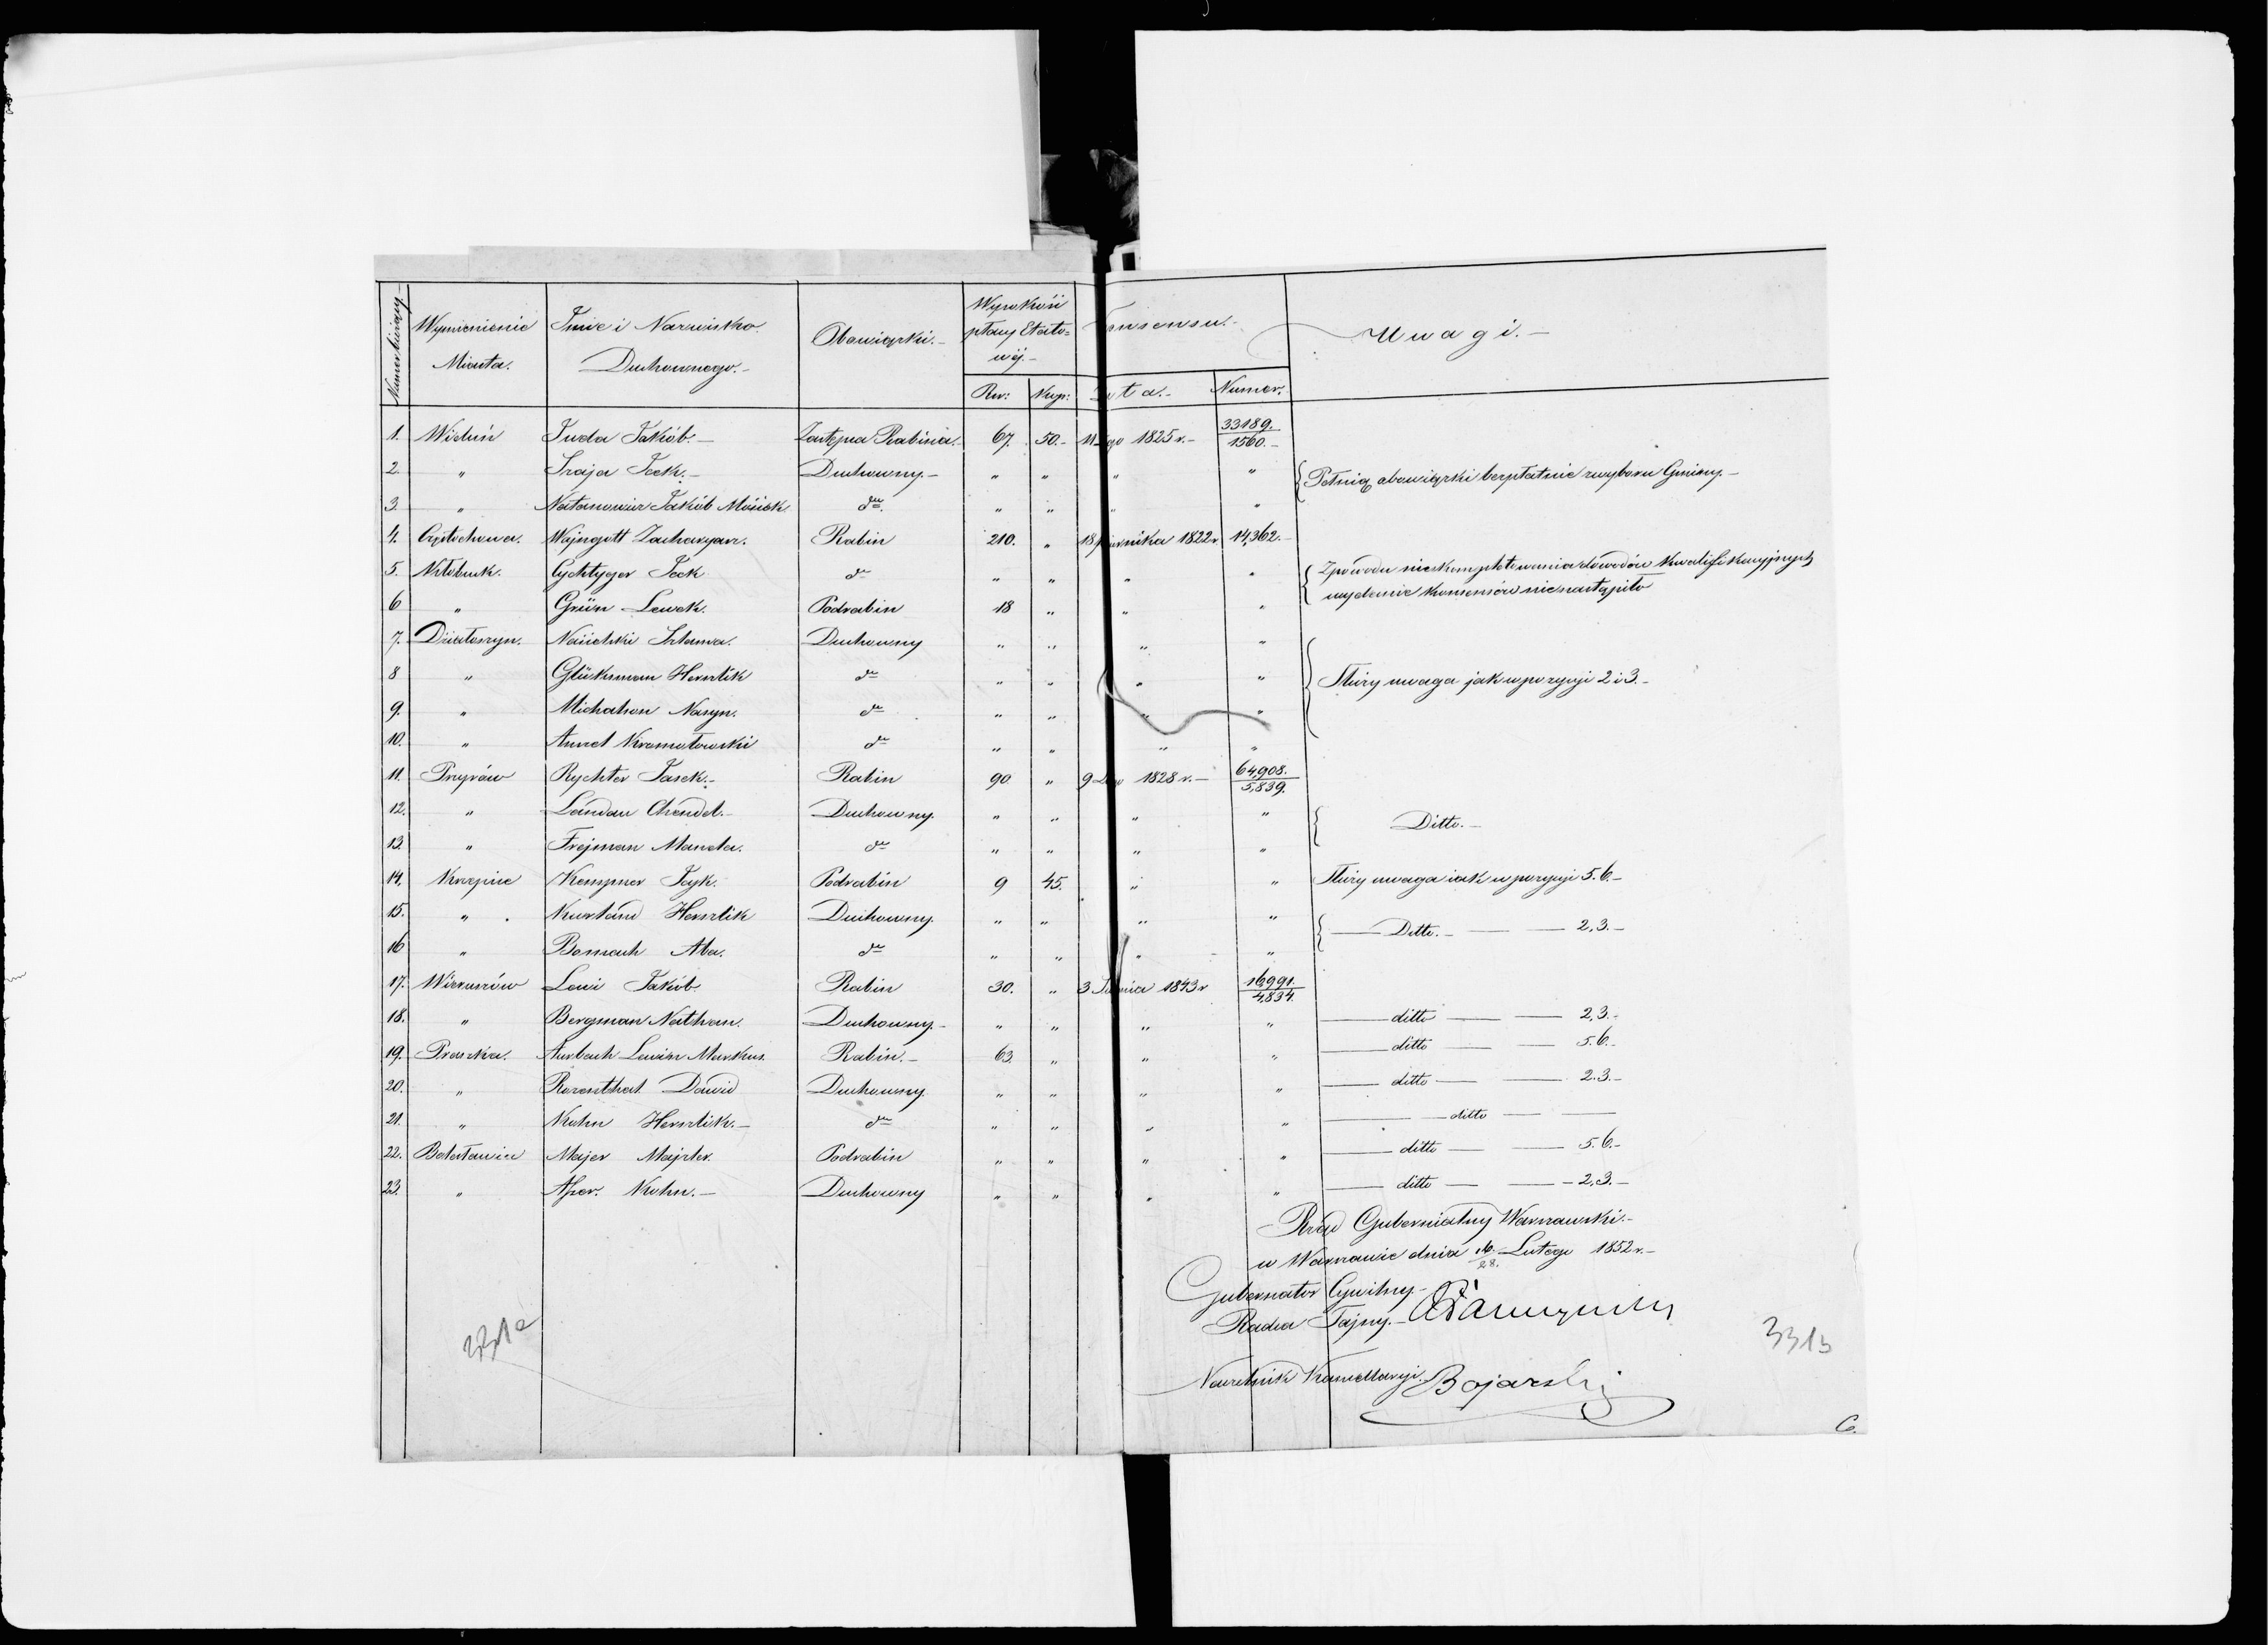 Numer bieżący.-
Wymienienie Miasta.
Imie i Nazwisko Duchownego.-
Obowiązki.-
Wysokość płacy Etatowéj.-
Rsr: Kop:
Konsensu.-
Data.- Numer.
Uwagi.-
1. Wieluń Juda Jakób.- Zastępca Rabina.- 67. 50.- 11 1825 r.- 33189./1560.-
2. " Szaja Icek.- Duchowny.- " " " "
{ Pełnią obowiązki bezpłatnie z wyboru Gminy.-
3. " Natanowicz Jakób Mosiek. dto. " " " "
4. Częstochowa. Wajngott Zacharyasz. Rabin 210. " 18 1822 r 14,362.-
5. Kłobuck. Cychtyger Icek dto " " " "
{ Z powodu nieskompletowania dowodów kwalifikacyjnych
wydanie konsensów nie nastąpiło
6 " Grün Lewek. Podrabin 18 " " "
7. Działoszyn. Szlama. Duchowny " " " "
8 " Glüksman Herszlik dto " " " "
{ Służy uwaga jak w pozycyi 2 i 3.-
9. " Michalson dto " " " "
10. " Kromołowski dto " " " "
11. Przyrów Rychter Josek.- Rabin 90 " 9 1828 r.- 64,908./5,839.
12. " Landau Chendel.- Duchowny. " " " "
{ Ditto.-
13. " Frejman Manela. dto " " " "
14. Krzepice Kempner Icyk. Podrabin 9 45. " " Służy uwaga iak w pozycyi 5.6.-
15. " Kurland Herszlik Duchowny. " " " "
{ Ditto.- 2,3.-
16 " Bomach Aba. dto " " " "
17. Wieruszów Lewi Jakób Rabin 30. " 3 1843 r 16,991./4,834.
18. " Bergman Nathan. Duchowny.- " " " " ditto 2,3.-
19. Praszka. Aurbach Lewin Markus. Rabin.- 63. " " " ditto 5.6.-
20. " Rozenthal Dawid Duchowny " " " " ditto 2.3.-
21. " Kohn Herszlik.- dto " " " " ditto
22. Bolesławiec Majer Majzler. Podrabin " " " " ditto 5.6.-
23. " Kohn.- Duchowny " " " " ditto 2,3.-
Rząd Gubernialny Warszawski.-
w Warszawie dnia 16/28. Lutego 1852 r.-
Gubernator Cywilny.-
Radca Tajny.-
Naczelnik Kancellaryi. Bojarski
331b
6.